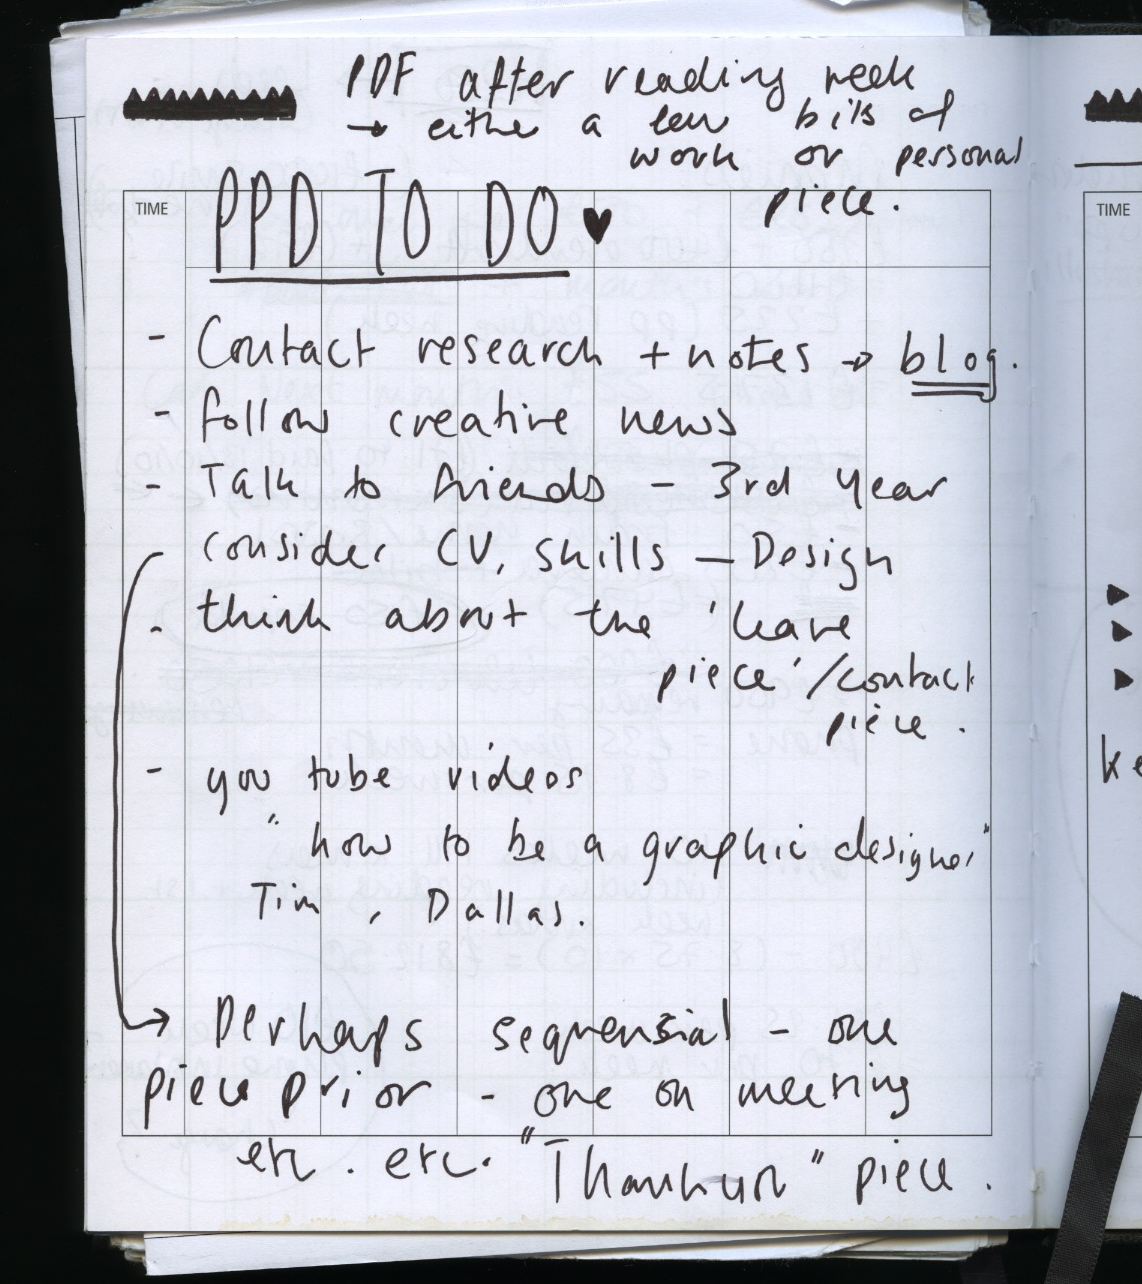 PDF after reading week
→ either a few bits of
work or personal
piece.
TIME
PPD TO DO ♥
TIME
- Contact research + notes → blog.
- follow creative news
- Talk to friends - 3rd year
consider CV, skills - Design
- think about the 'leave
piece' / contact
piece.
- you tube videos
"how to be a graphic designer"
Tim , Dallas.
→ Perhaps sequensial - one
piece prior - one on meeting
etc. etc. "Thankyou" piece.
ke